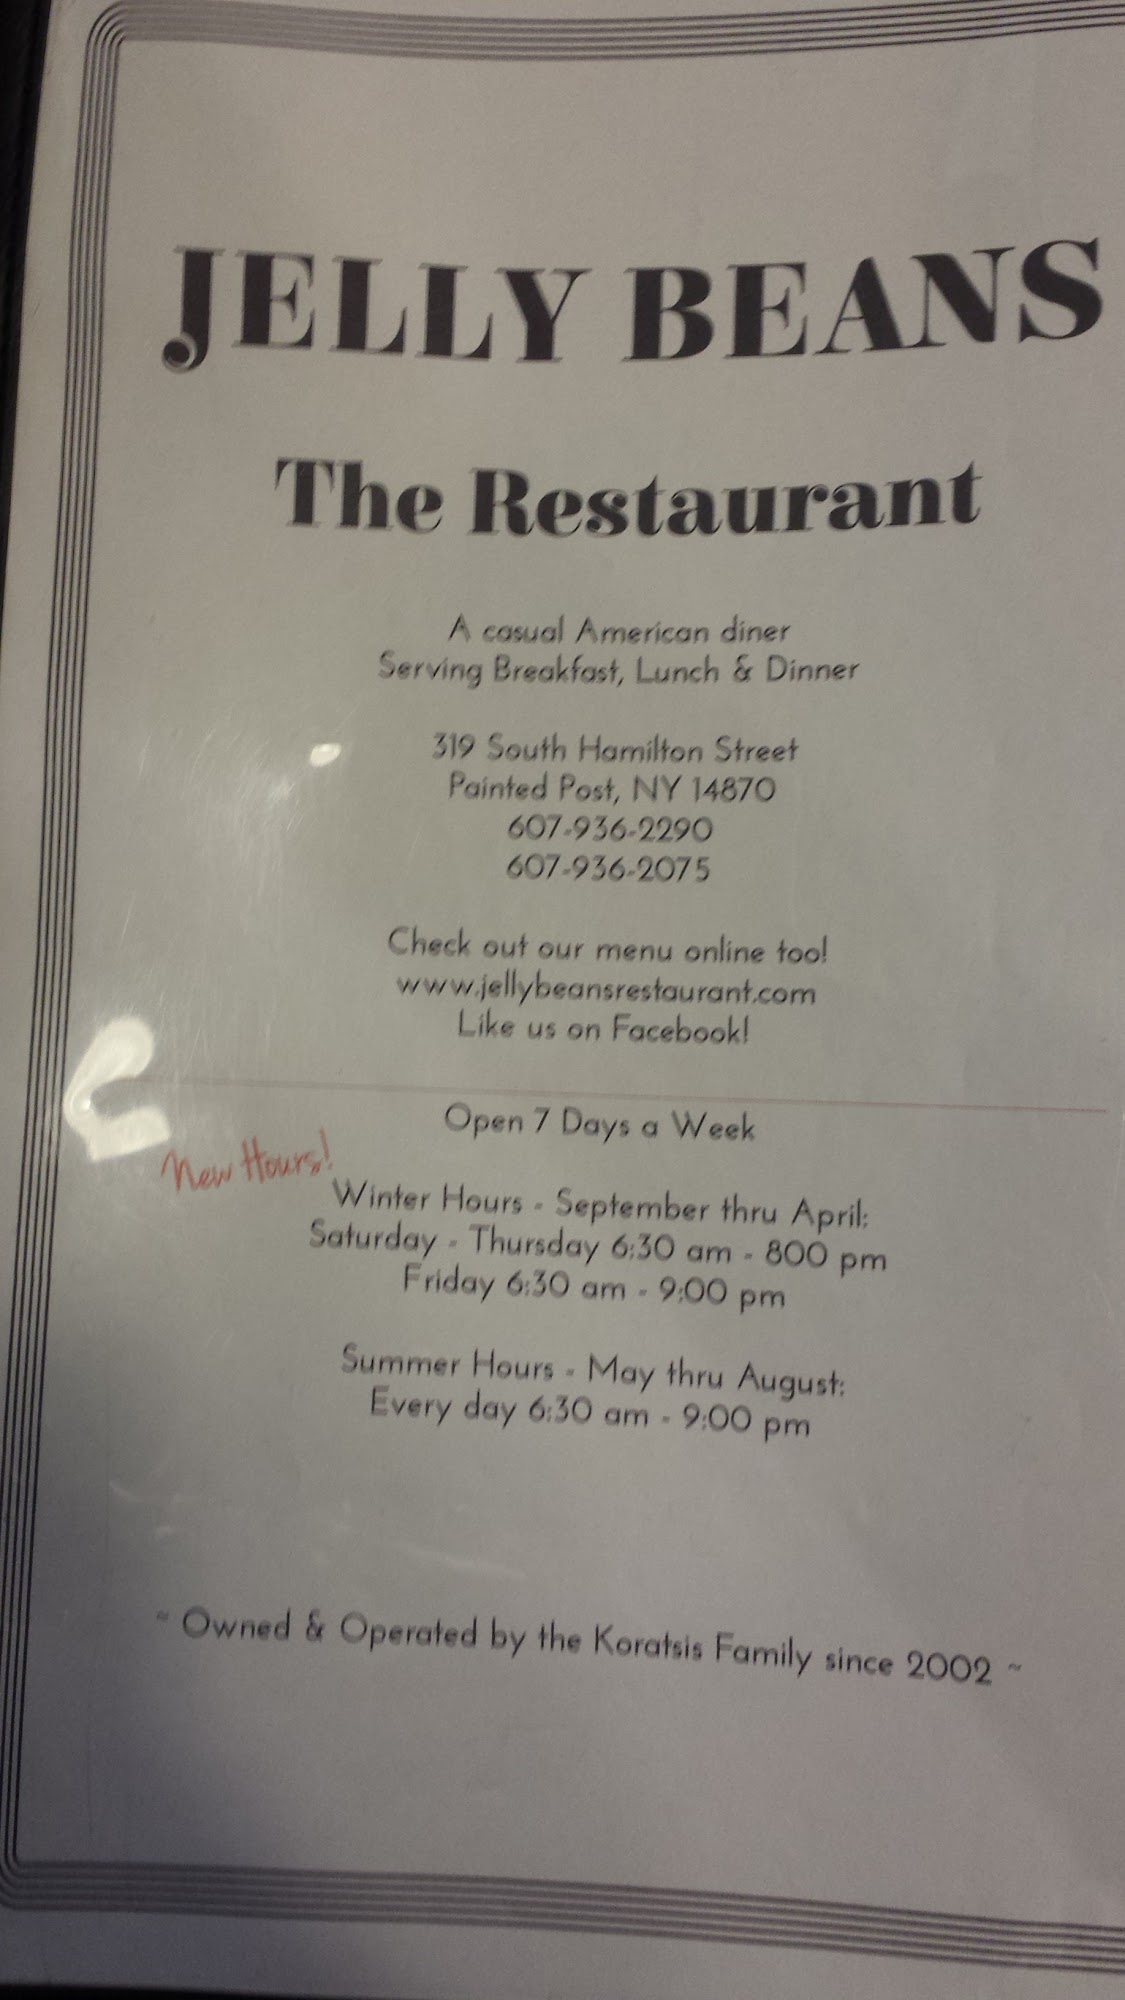 JELLY BEANS
The Restaurant
A casual American diner
Serving Breakfast, Lunch & Dinner
319 South Hamilton Street
Painted Post, NY 14870
607-936-2290
607-936-2075
Check out our menu online too!
www.jellybeansrestaurant.com
Like us on Facebook!
Open 7 Days a Week
New Hours!
Winter Hours - September thru April:
Saturday - Thursday 6:30 am - 800 pm
Friday 6:30 am - 9:00 pm
Summer Hours - May thru August:
Every day 6:30 am - 9:00 pm
~ Owned & Operated by the Koratsis Family since 2002 ~